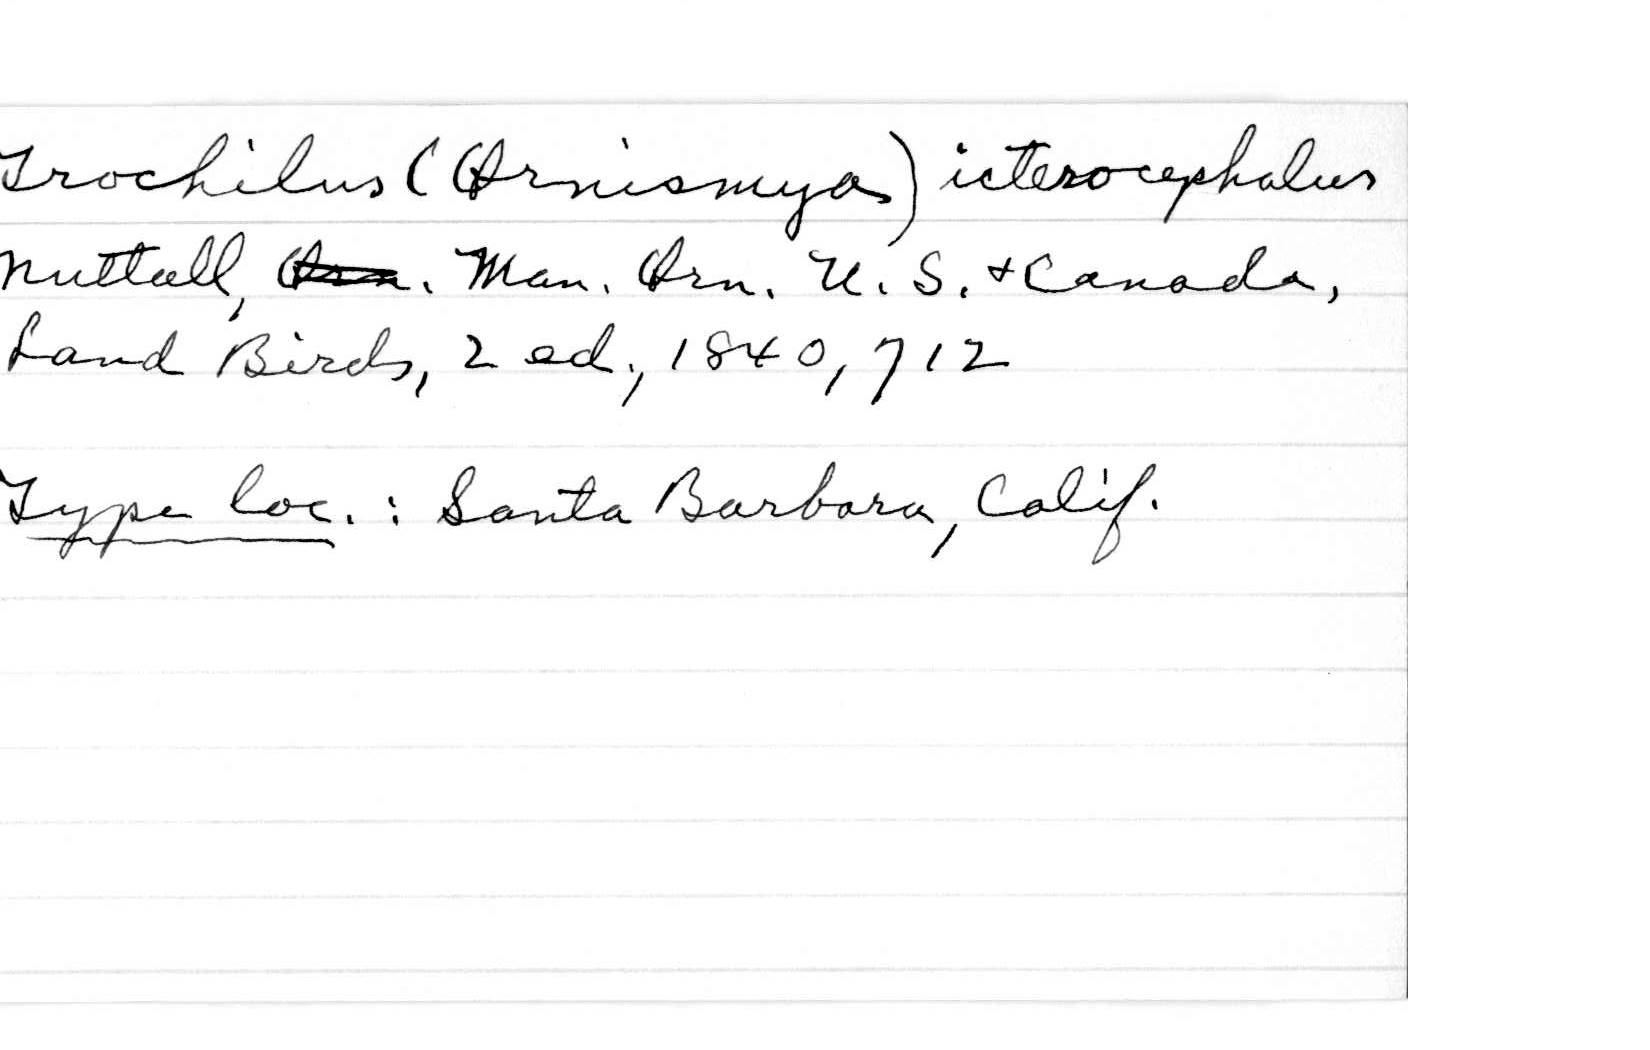 Trochilus (Ornismya) icterocephalus
Nuttall, Orn. Man. Orn. U. S. + Canada,
Land Birds, 2 ed., 1840, 712
Type loc. : Santa Barbara, Calif.